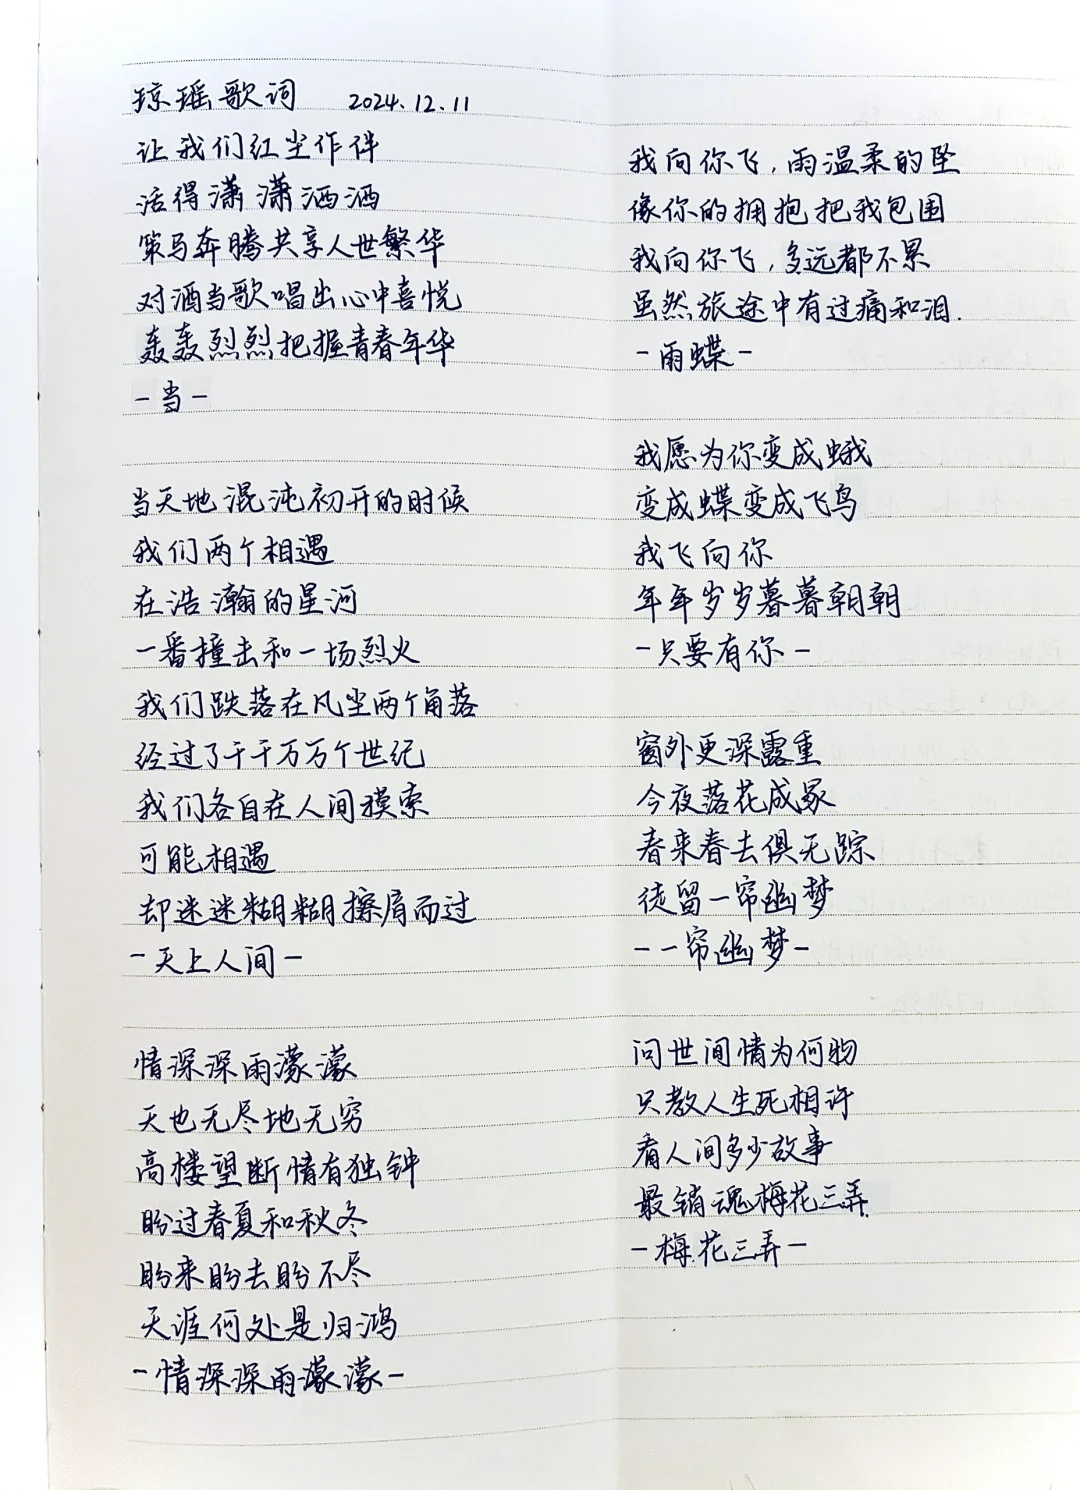 琼瑶歌词 2024.12.11
让我们红尘作伴
活得潇潇洒洒
策马奔腾共享人世繁华
对酒当歌唱出心中喜悦
轰轰烈烈把握青春年华
-当-
当天地混沌初开的时候
我们两个相遇
在浩瀚的星河
一番撞击和一场烈火
我们跌落在凡尘两个角落
经过了千千万万个世纪
我们各自在人间摸索
可能相遇
却迷迷糊糊擦肩而过
-天上人间-
情深深雨濛濛
天也无尽地无穷
高楼望断情有独钟
盼过春夏和秋冬
盼来盼去盼不尽
天涯何处是归鸿
-情深深雨濛濛-
我向你飞,雨温柔的坠
像你的拥抱把我包围
我向你飞,多远都不累
虽然旅途中有过痛和泪.
-雨蝶-
我愿为你变成蛾
变成蝶变成飞鸟
我飞向你
年年岁岁暮暮朝朝
-只要有你-
窗外更深露重
今夜落花成冢
春来春去俱无踪
徒留一帘幽梦
-一帘幽梦-
问世间情为何物
只教人生死相许
看人间多少故事
最销魂梅花三弄
-梅花三弄-